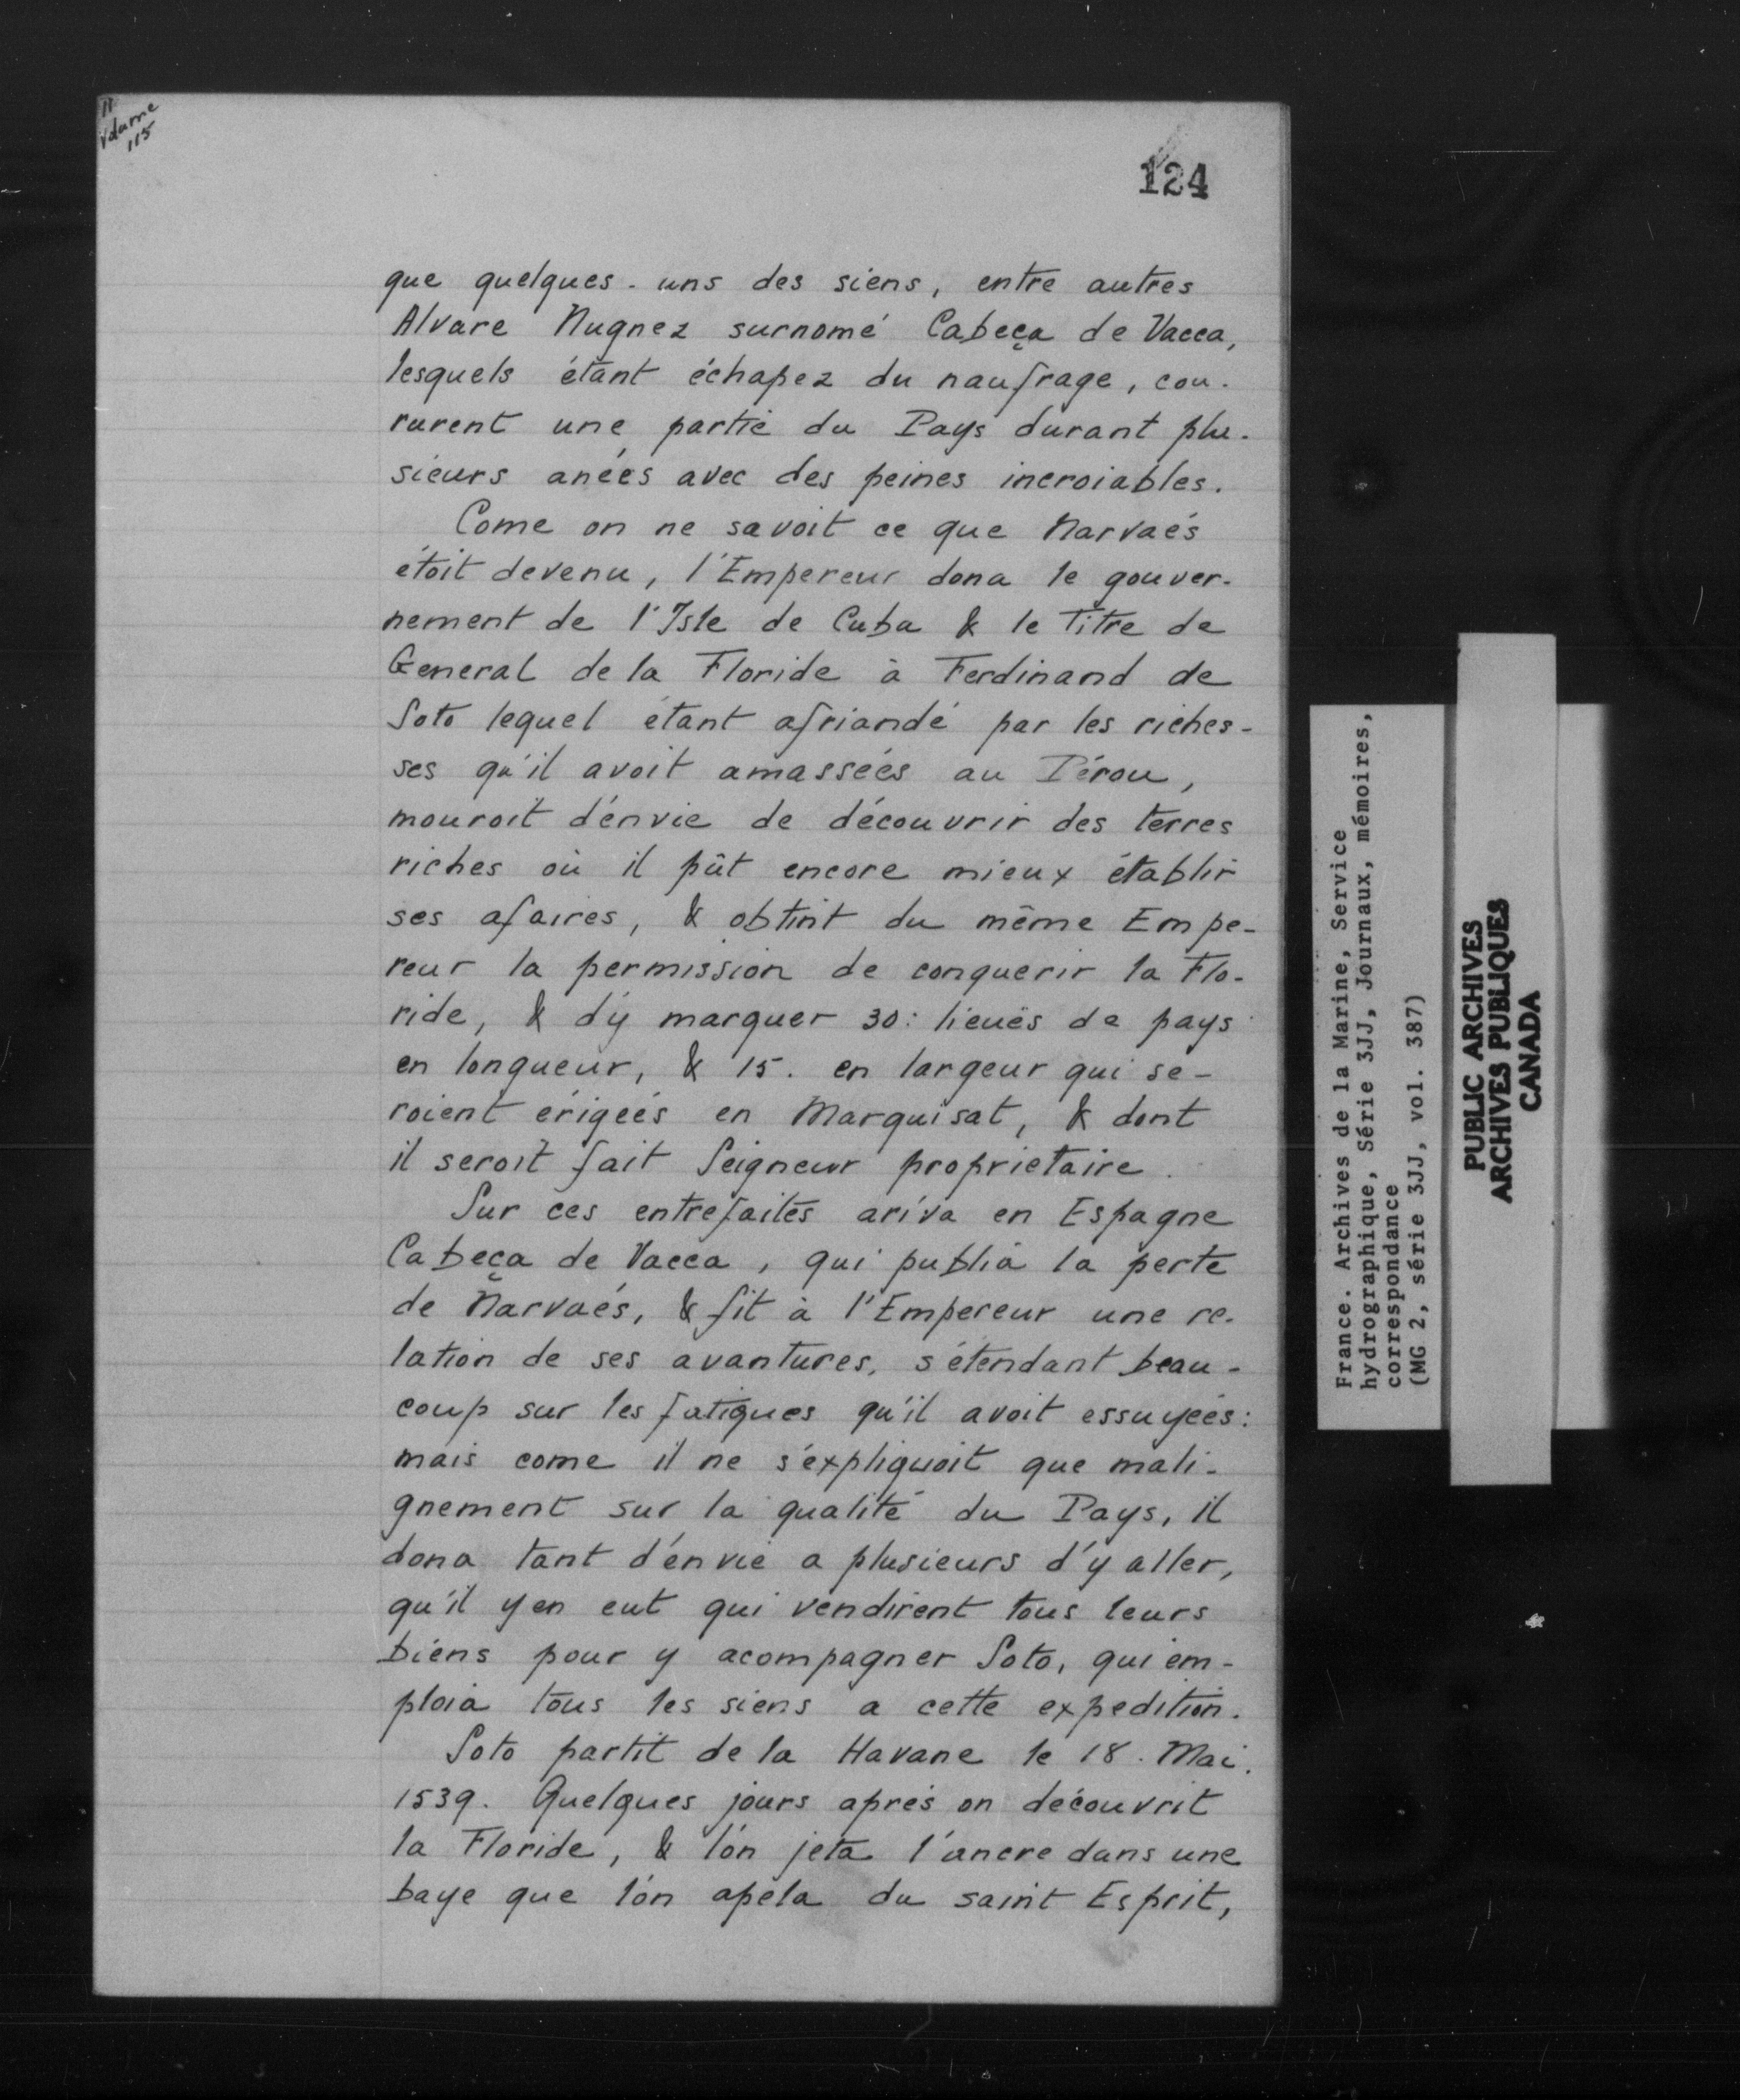 11
volume
115
124
que quelques-uns des siens, entre autres
Alvare Nugnez surnomé Cabeça de Vacca,
lesquels étant échapez du naufrage, cou-
rurent une partie du Pays durant plu-
sieurs anées avec des peines incroiables.
Come on ne savoit ce que Narvaés
étoit devenu, l'Empereur dona le gouver-
nement de l'Isle de Cuba & le Titre de
General de la Floride à Ferdinand de
Soto lequel étant afriandé par les riches-
ses qu'il avoit amassées au Pérou,
mouroit d'envie de découvrir des terres
riches où il pût encore mieux établir
ses afaires, & obtint du même Empe-
reur la permission de conquerir la Flo-
ride, & d'y marquer 30: lieuës de pays
en longueur, & 15. en largeur qui se-
roient érigées en Marquisat, & dont
il seroit fait Seigneur proprietaire.
Sur ces entrefaites ariva en Espagne
Cabeça de Vacca, qui publia la perte
de Narvaés, & fit à l'Empereur une re-
lation de ses avantures, s'étendant beau-
coup sur les fatigues qu'il avoit essuyées:
mais come il ne s'expliquoit que mali-
gnement sur la qualité du Pays, il
dona tant d'envie a plusieurs d'y aller,
qu'il y en eut qui vendirent tous leurs
biens pour y acompagner Soto, qui em-
ploia tous les siens a cette expedition.
Soto partit de la Havane le 18. Mai.
1539. Quelques jours aprés on découvrit
la Floride, & l'on jeta l'ancre dans une
baye que l'on apela du saint Esprit,
France. Archives de la Marine, Service
hydrographique, Série 3JJ, Journaux, mémoires,
correspondance
(MG 2, série 3JJ, vol. 387)
PUBLIC ARCHIVES
ARCHIVES PUBLIQUES
CANADA